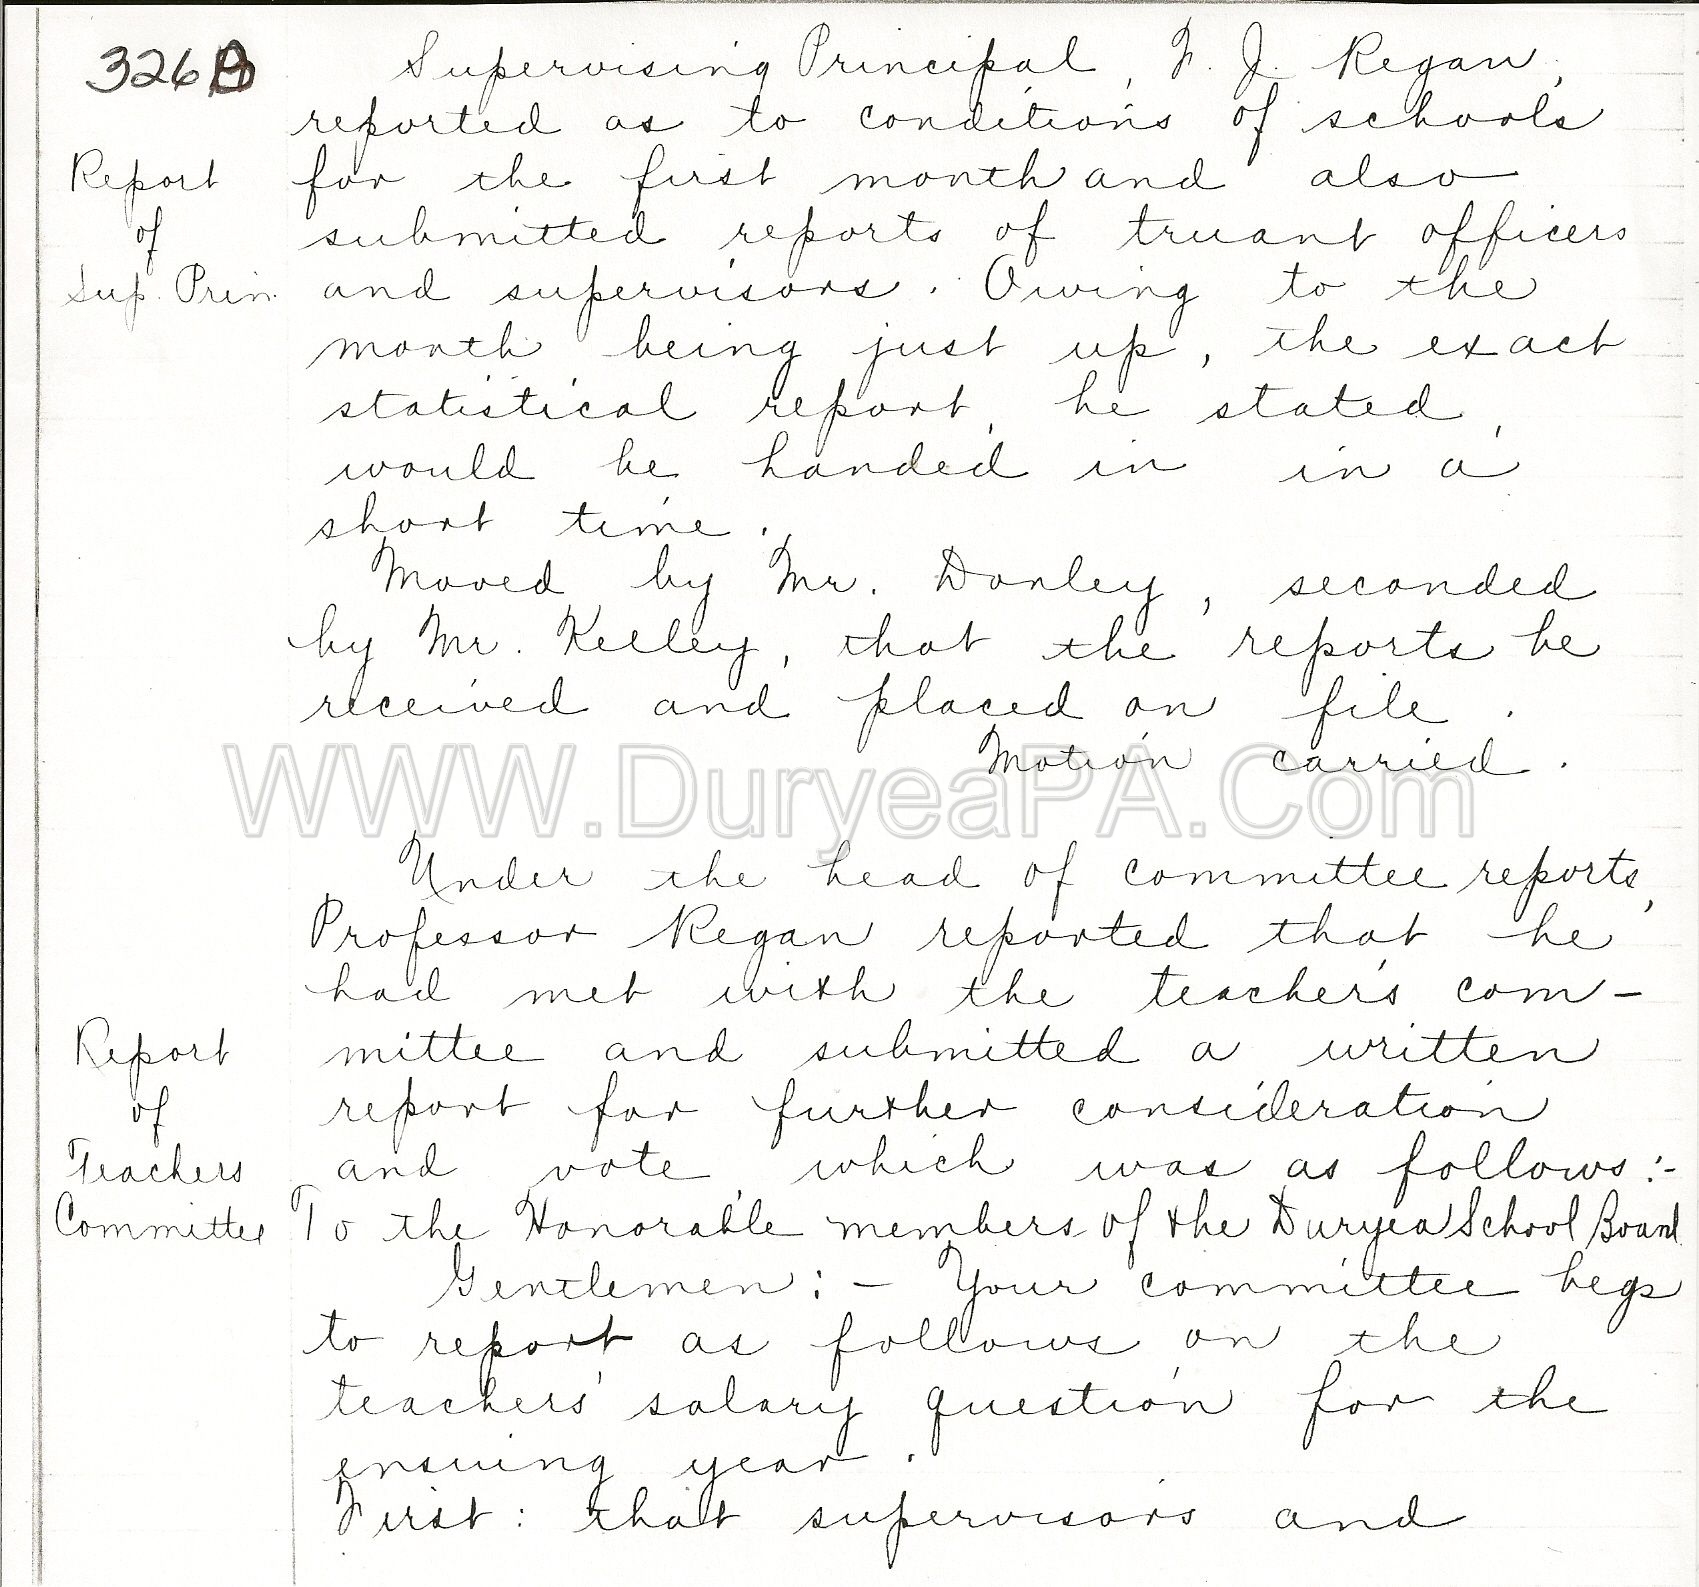 326B
Supervising Principal, F. J. Regan,
reported as to conditions of schools
Report
for the first month and also
of
submitted reports of truant officers
Sup. Prin.
and supervisors. Owing to the
month being just up, the exact
statistical report, he stated,
would be handed in in a
short time.
Moved by Mr. Donley, seconded
by Mr. Kelley, that the reports be
received and placed on file.
Motion carried.
WWW.DuryeaPA.Com
Under the head of committee reports,
Professor Regan reported that he
had met with the teacher's com-
Report
mittee and submitted a written
of
report for further consideration
Teachers
and vote which was as follows:-
Committee
To the Honorable members of the Duryea School Board
Gentlemen: - Your committee begs
to report as follows on the
teachers' salary question for the
ensuing year.
First: that supervisors and